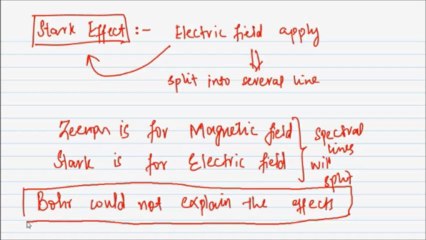 Stark Effect :- Electric field apply
split into several line
Zeeman is for Magnetic field
Stark is for Electric field
spectral lines will split
Bohr could not explain the effects